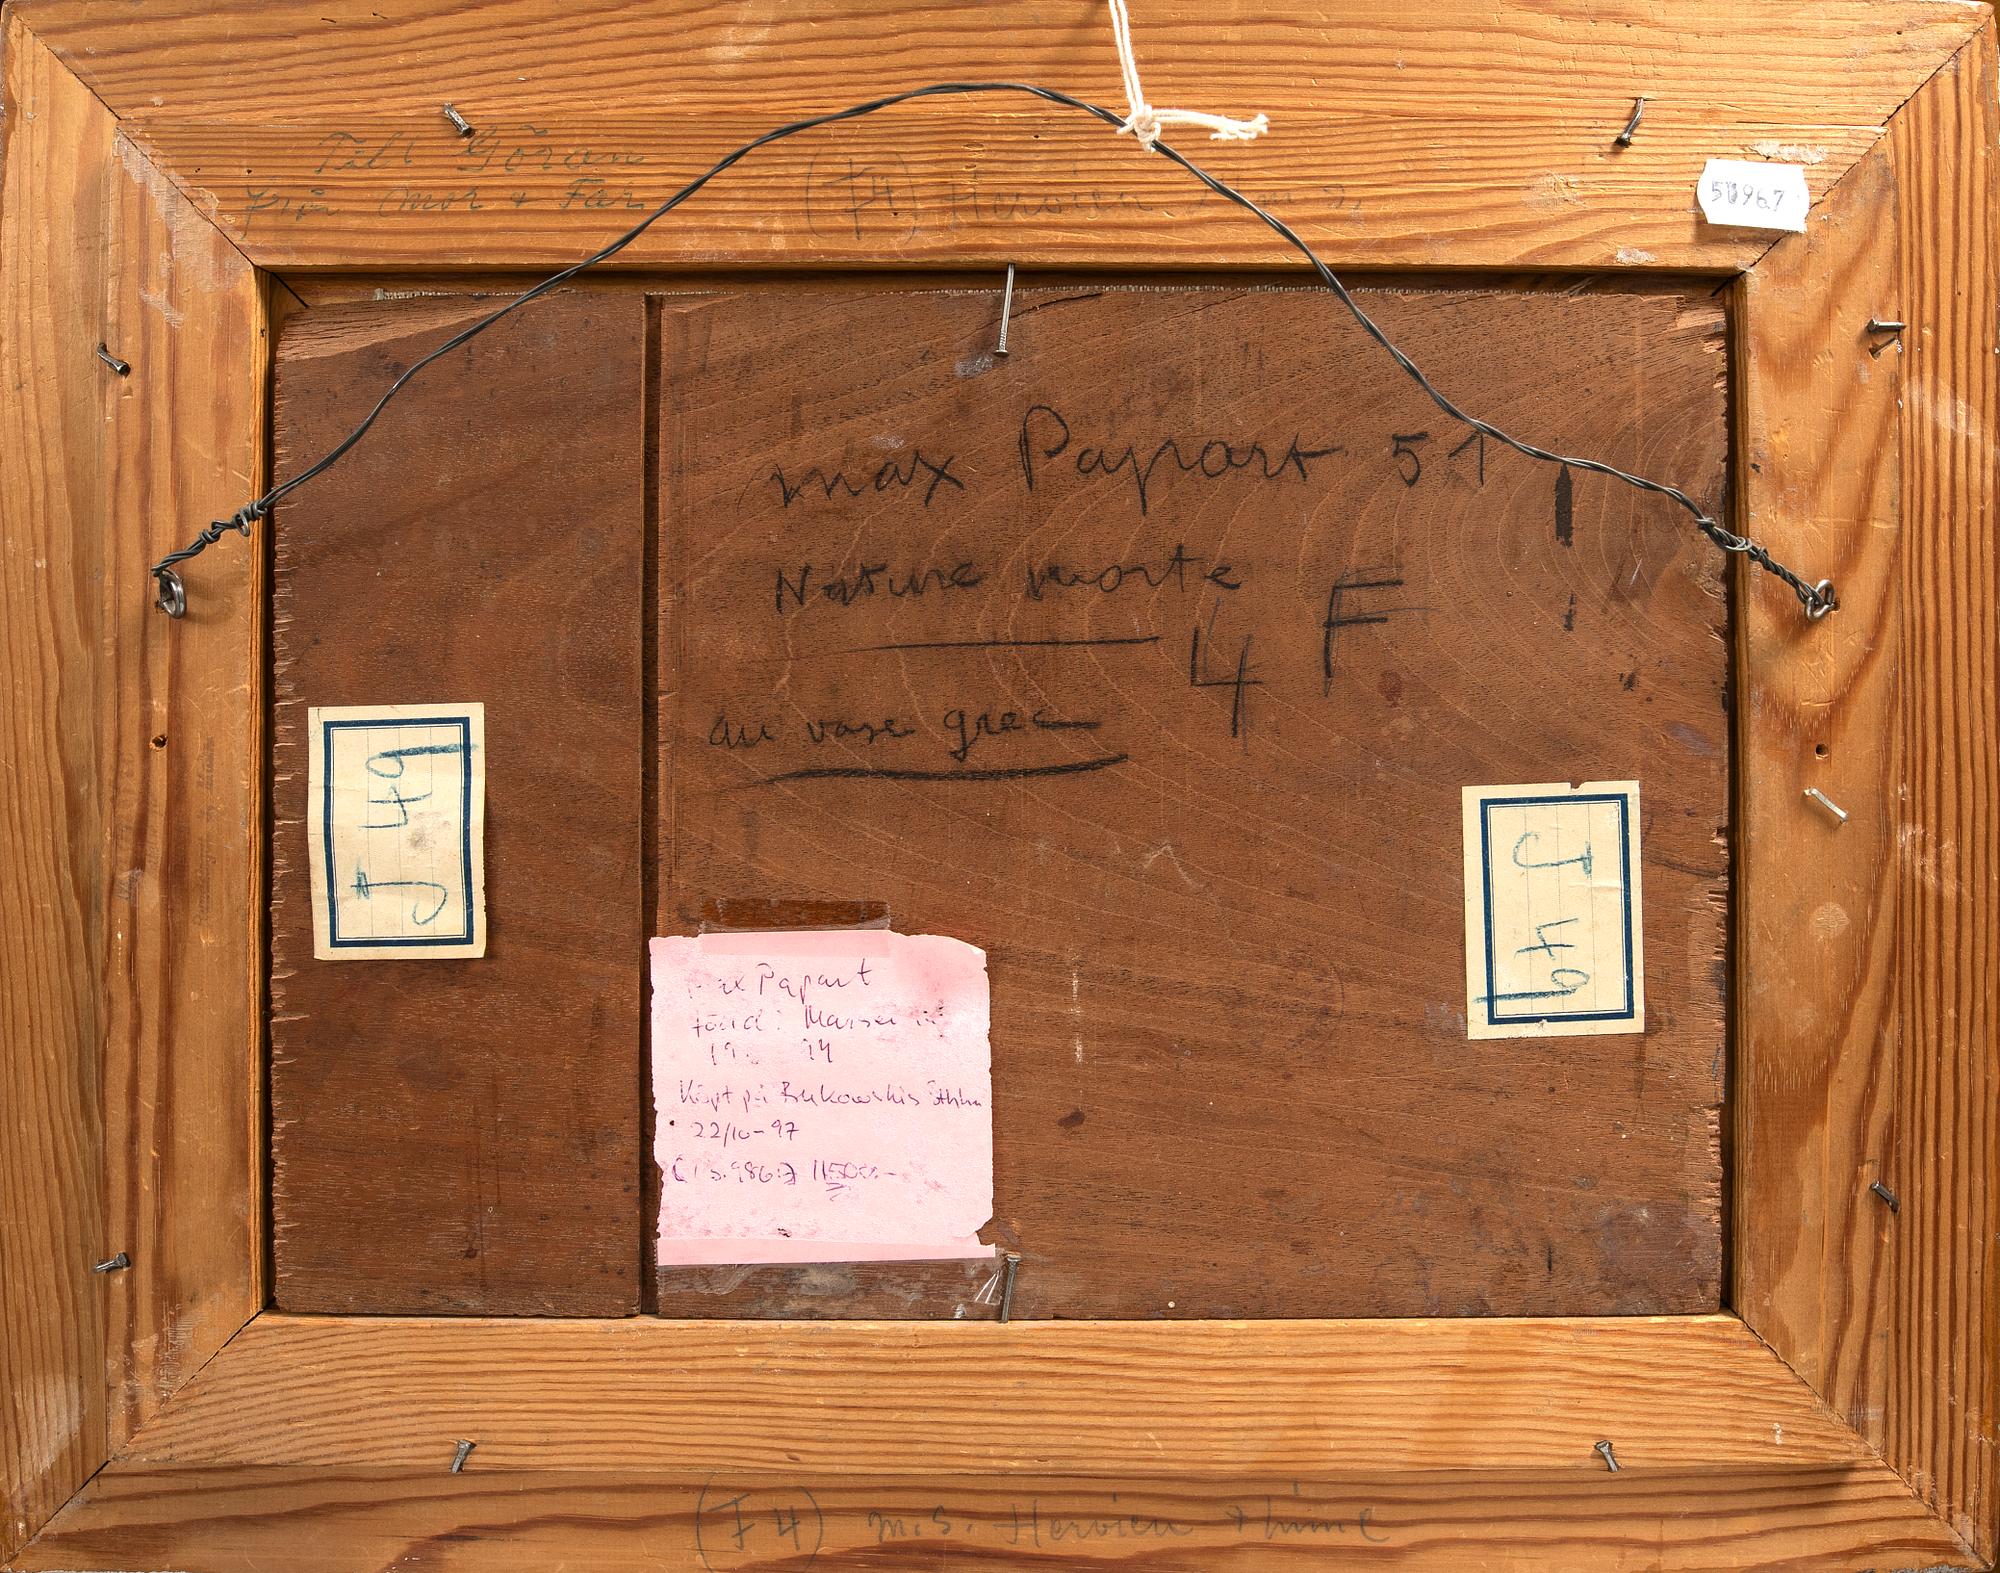 Till Göran
från Mor + Far
(F4) Hervieu
max Papart 51
Nature morte
4 F
au vase grec
J 49
J 49
Max Papart
född: Marseille
Köpt på Bukowskis Sthlm
22/10-97
11500:-
(F4) M.S. Hervieu